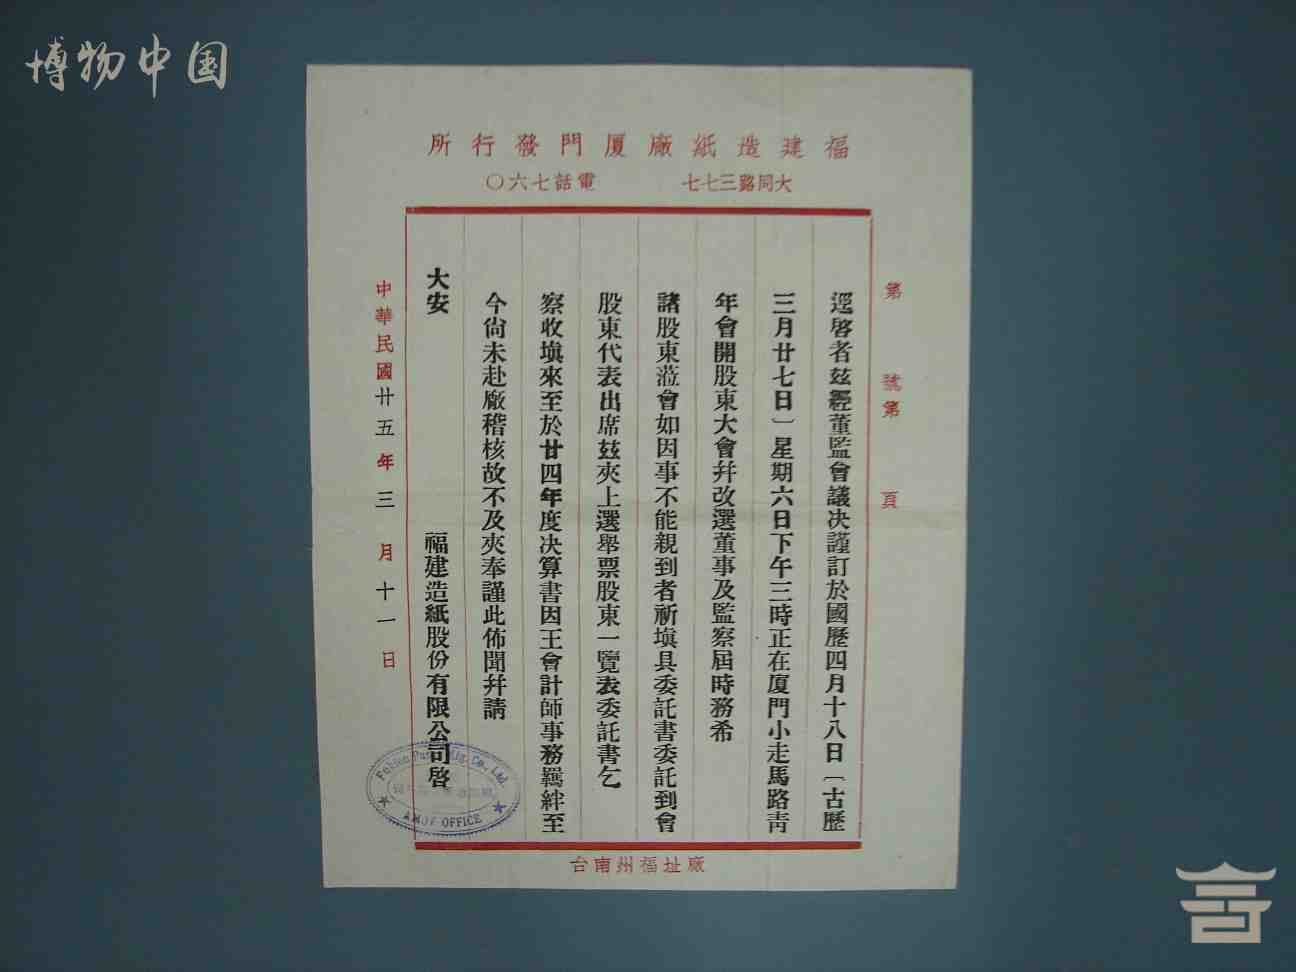 博物中国
福建造紙廠厦門發行所
大同路三七七
電話七六〇
第 號第 頁
逕啓者玆經董監會議决謹訂於國歷四月十八日〔古歷
三月廿七日〕星期六日下午三時正在厦門小走馬路靑
年會開股東大會幷改選董事及監察屆時務希
諸股東蒞會如因事不能親到者祈塡具委託書委託到會
股東代表出席玆夾上選舉票股東一覽表委託書乞
察收塡來至於廿四年度决算書因王會計師事務羈絆至
今尙未赴廠稽核故不及夾奉謹此佈聞幷請
大安
福建造紙股份有限公司啓
中華民國廿五年三月十一日
Co., Ltd.
AMOY OFFICE
廠址福州南台